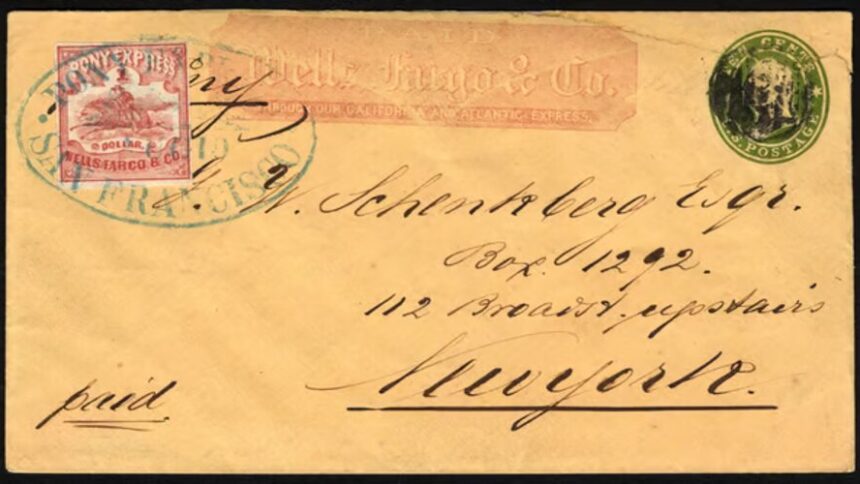 PAID
Wells, Fargo & Co.
THROUGH OUR CALIFORNIA AND ATLANTIC EXPRESS.
PONY EXPRESS
1
DOLLAR.
WELLS FARGO & CO.
PONY
SAN FRANCISCO
TEN CENTS
U.S. POSTAGE
W. Schenkberg Esqr.
Box. 1292.
112 Broadst. upstairs
New york.
paid